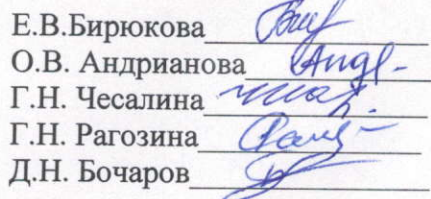 Е.В.Бирюкова
О.В. Андрианова
Г.Н. Чесалина
Г.Н. Рагозина
Д.Н. Бочаров